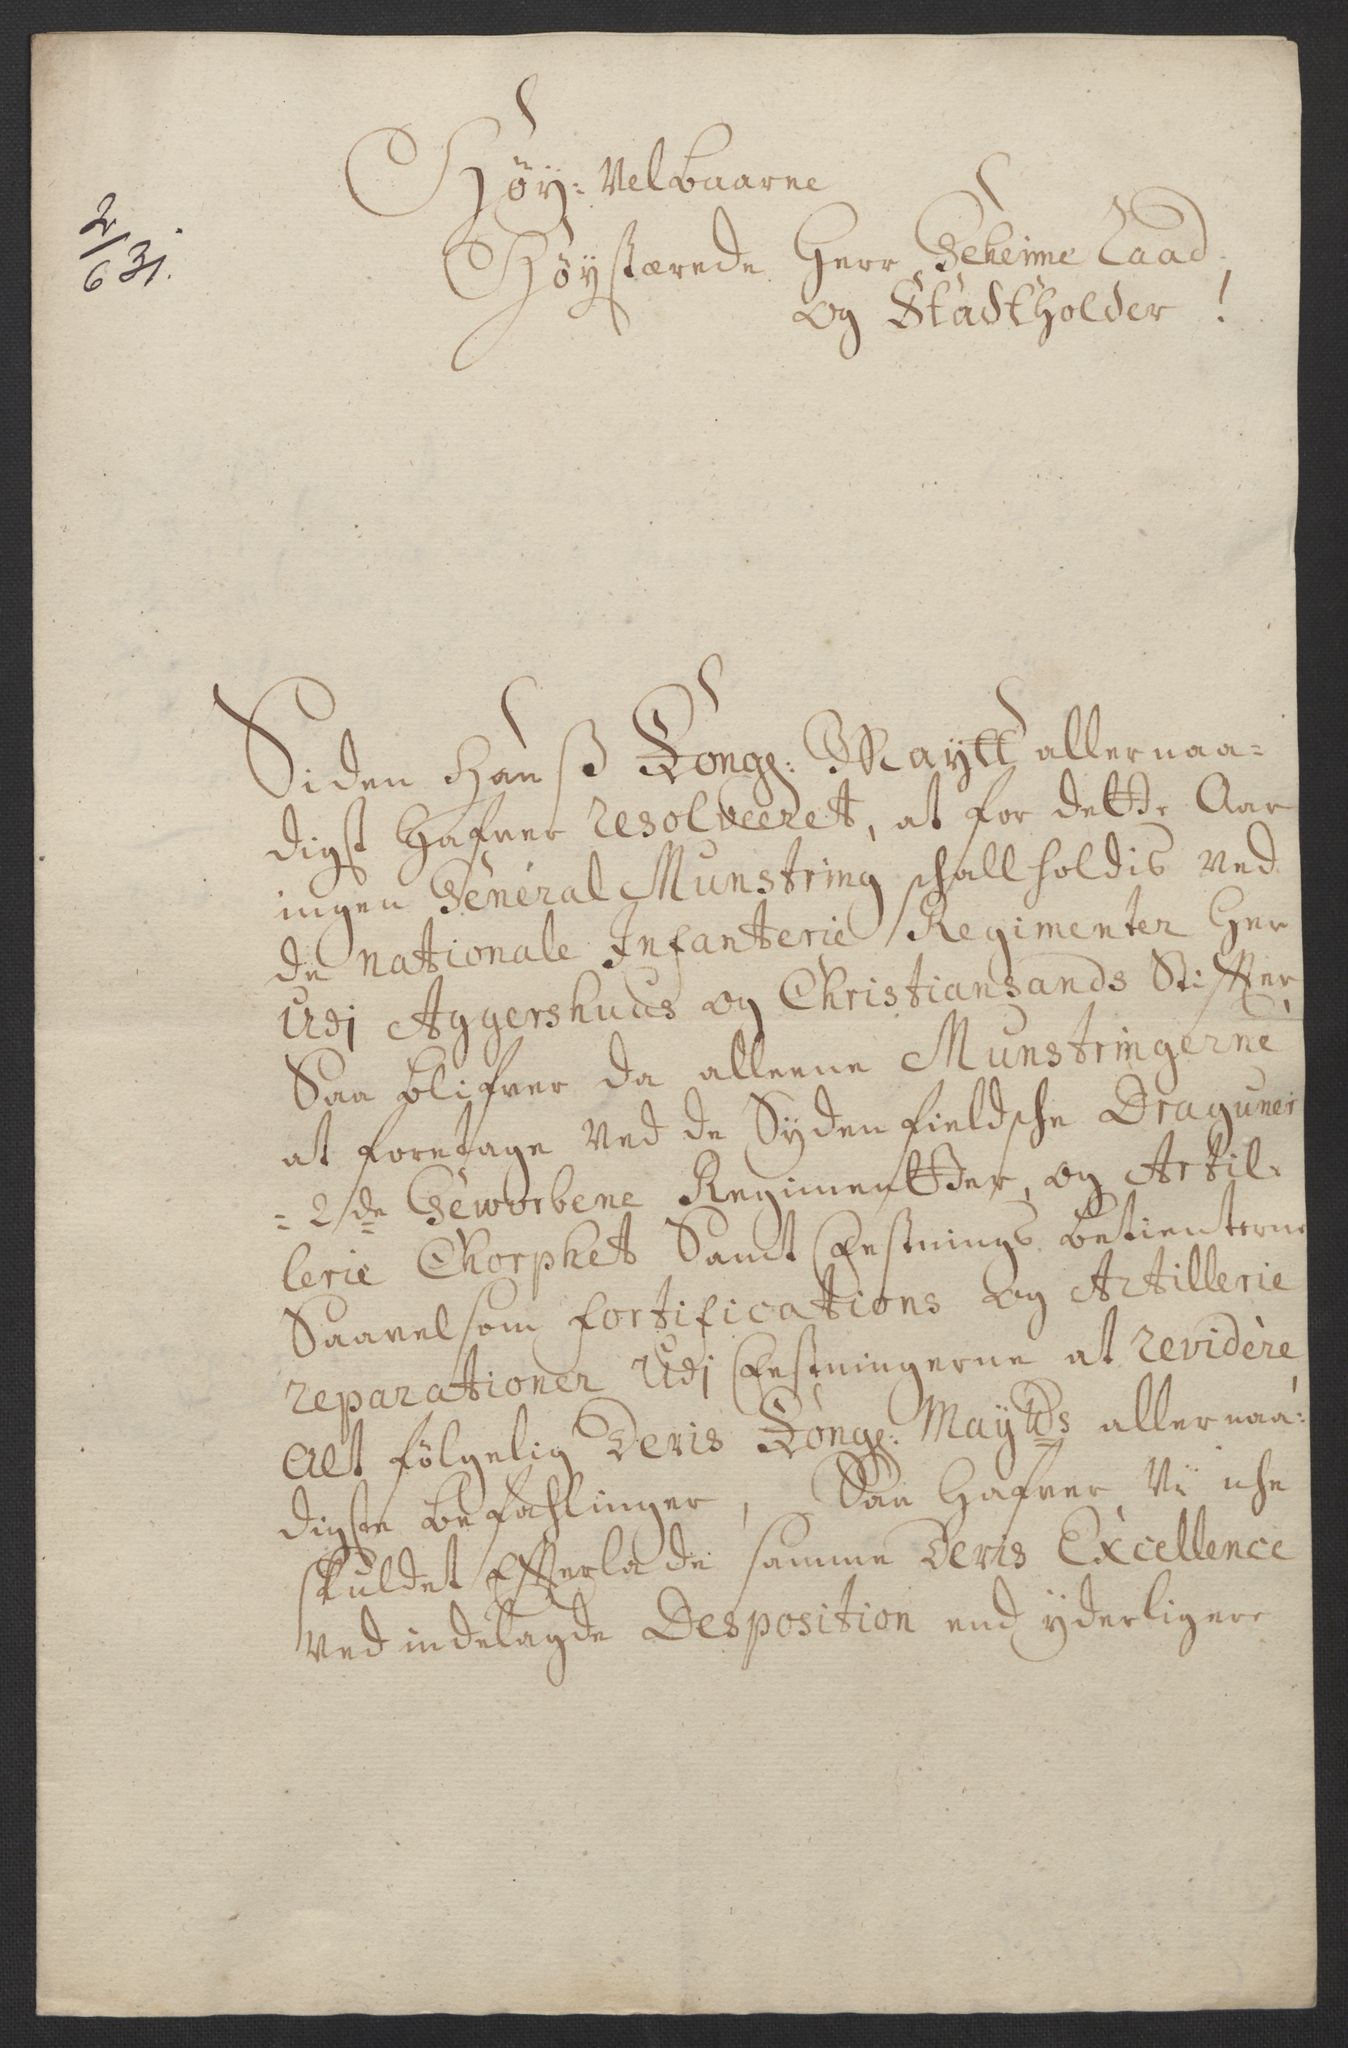 2/6 31.
Höy: Velbaarne
Höystærede Herr Geheime Raad
og Stadtholder !
Siden Hans Kongl: Maytt allernaa=
digst hafver resolveeret, at for dette Aar
ingen General Munstring schall holdis ved
de nationale Infanterie Regimenter her
udj Aggershuus og Christiansands Stiffter
Saa blifver da alleene Munstringerne
at foretage ved de Sydenfieldsche Draguner
= 2de Geworbene Regimentter, og Artil=
lerie Chorphet Samt Festnings betienterne
Saavelsom fortifications og Artillerie
reparationer udj Festningerne at revidere
alt fölgelig Deris Kongl: Maytts allernaa=
digste befahlinger, Saa hafver Vi iche
skuldet efterlade samme Deris Excellence
ved indelagde Desposition end yderligere